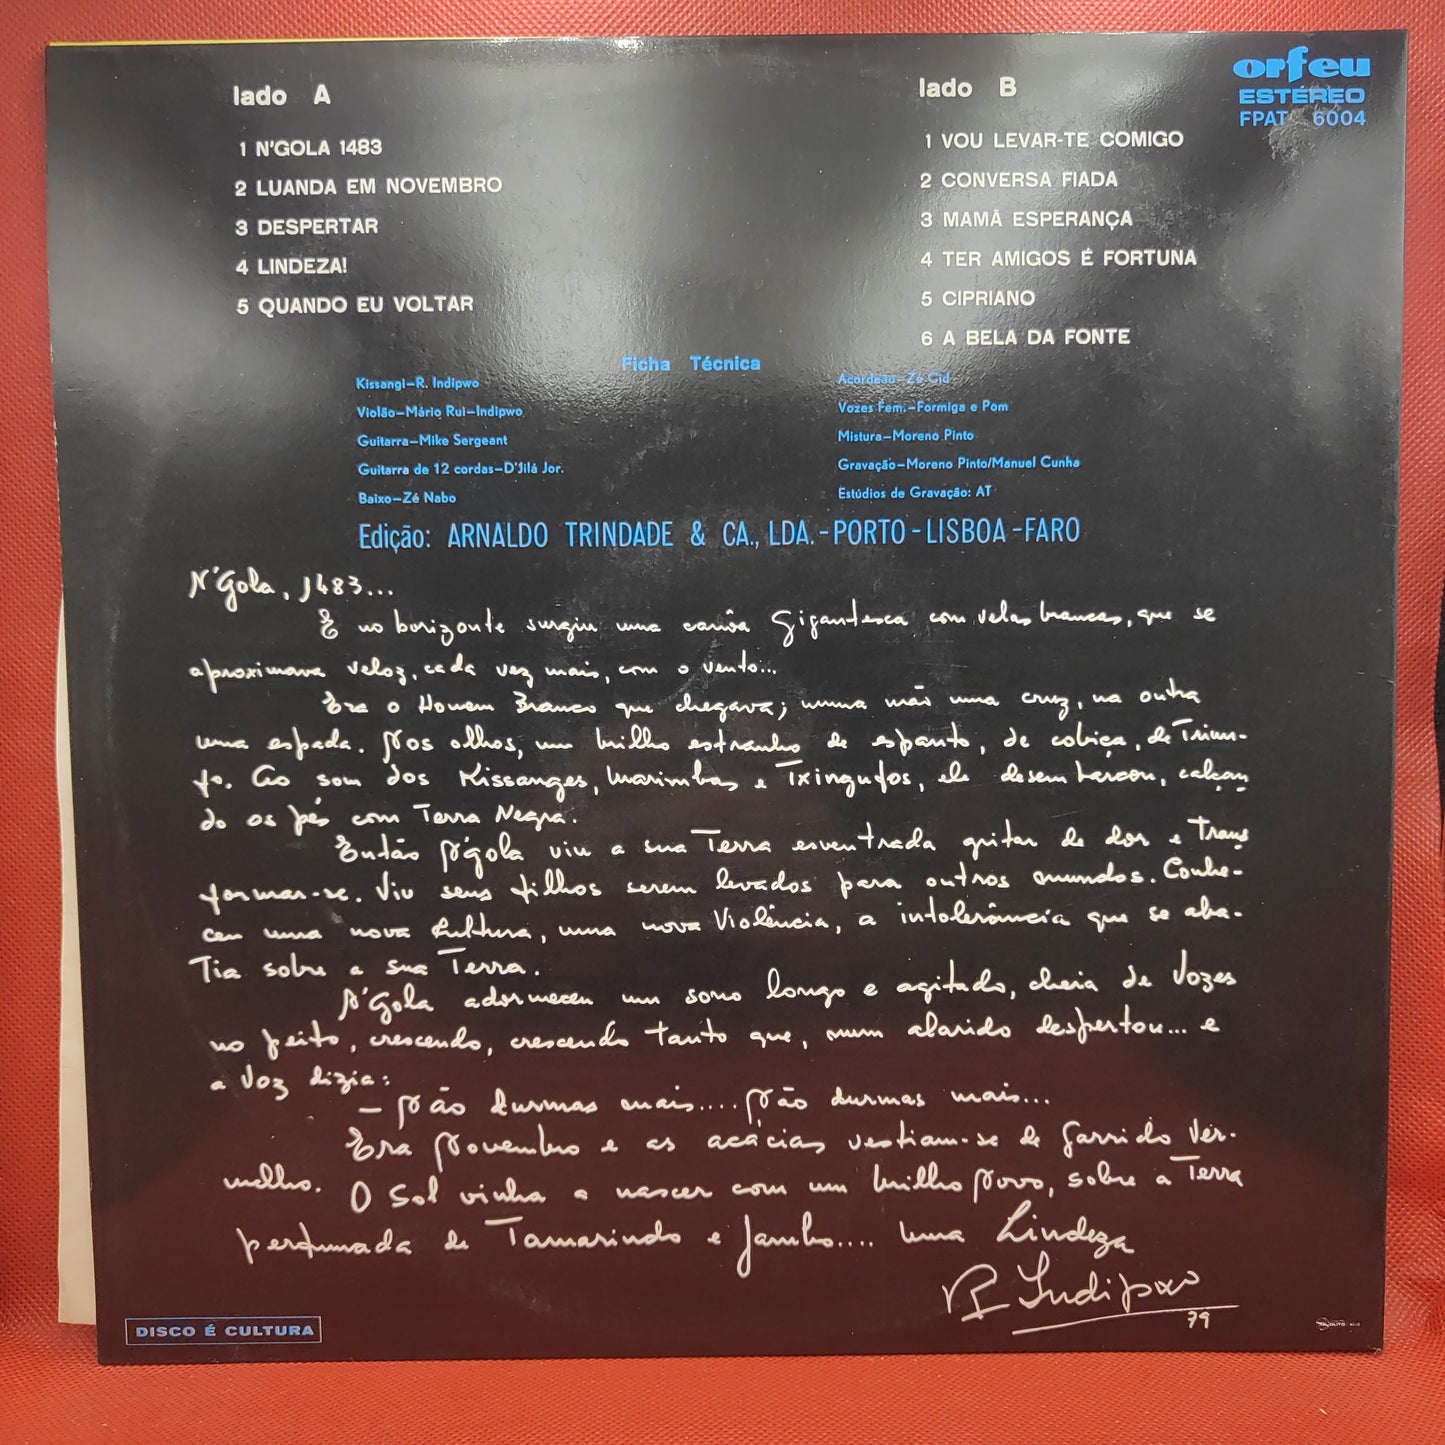 lado A
1 N'GOLA 1483
2 LUANDA EM NOVEMBRO
3 DESPERTAR
4 LINDEZA!
5 QUANDO EU VOLTAR
lado B
1 VOU LEVAR-TE COMIGO
2 CONVERSA FIADA
3 MAMÃ ESPERANÇA
4 TER AMIGOS É FORTUNA
5 CIPRIANO
6 A BELA DA FONTE
orfeu
ESTÉREO
FPAT 6004
Ficha Técnica
Kissangi-R. Indipwo
Violão-Mário Rui-Indipwo
Guitarra-Mike Sergeant
Guitarra de 12 cordas-D'Jilá Jor.
Baixo-Zé Nabo
Acordeão-Zé Cid
Vozes Fem.-Formiga e Pom
Mistura-Moreno Pinto
Gravação-Moreno Pinto/Manuel Cunha
Estúdios de Gravação: AT
Edição: ARNALDO TRINDADE & CA., LDA.-PORTO-LISBOA-FARO
N'Gola, 1483...
E no horizonte surgiu uma canôa Gigantesca com velas brancas, que se
aproximava veloz, cada vez mais, com o vento...
Era o Homem Branco que chegava; numa mão uma cruz, na outra
uma espada. Nos olhos, um brilho estranho de espanto, de cobiça, de Triun-
fo. Ao som dos Kissanges, Marimbas e Txingufos, ele desembarcou, calçan
do os pés com Terra Negra.
Então N'gola viu a sua Terra esventrada gritar de dor e Trans
formar-se. Viu seus filhos serem levados para outros mundos. Conhe-
ceu uma nova Cultura, uma nova Violência, a intolerância que se aba-
Tia sobre a sua Terra.
N'Gola adormeceu um sono longo e agitado, cheia de Vozes
no peito, crescendo, crescendo tanto que, num alarido despertou... e
a Voz dizia:
- Não durmas mais.... Não durmas mais...
Era Novembro e as acácias vestiam-se de garrido Ver-
melho. O Sol vinha a nascer com um brilho Novo, sobre a Terra
perfumada de Tamarindo e Jambo.... Uma Lindeza
R Indipwo
79
DISCO É CULTURA